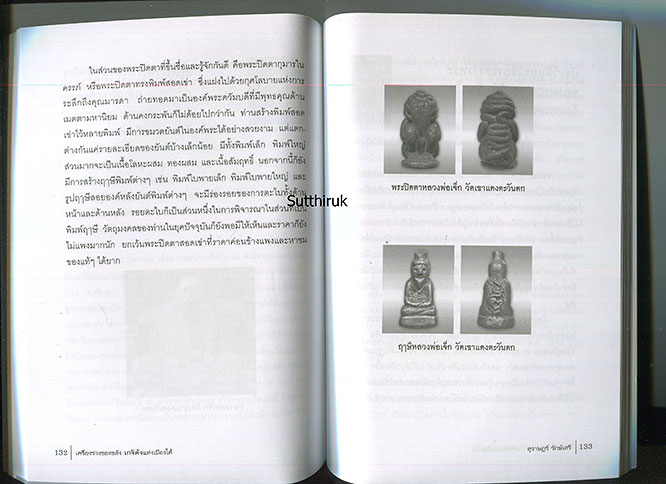 ในส่วนของพระปิดตาที่ขึ้นชื่อและรู้จักกันดี คือพระปิดตากุมารใน
ครรภ์ หรือพระปิดตาทรงพิมพ์สอดเข่า ซึ่งแฝงไปด้วยกุศโลบายแห่งการ
ระลึกถึงคุณมารดา ถ่ายทอดมาเป็นองค์พระควัมบดีที่มีพุทธคุณด้าน
เมตตามหานิยม ด้านคงกระพันก็ไม่ด้อยไปกว่ากัน ท่านสร้างพิมพ์สอด
เข่าไว้หลายพิมพ์ มีการขมวดยันต์ในองค์พระได้อย่างสวยงาม แต่แตก-
ต่างกันค่รายละเอียดของยันต์บ้างเล็กน้อย มีทั้งพิมพ์เล็ก พิมพ์ใหญ่
ส่วนมากจะเป็นเนื้อโลหะผสม ทองผสม และเนื้อสัมฤทธิ์ นอกจากนี้ก็ยัง
มีการสร้างฤๅษีพิมพ์ต่างๆ เช่น พิมพ์ใบพายเล็ก พิมพ์ใบพายใหญ่ และ
รูปฤๅษีลอยองค์หลังยันต์พิมพ์ต่างๆ จะมีร่องรอยของการตะไบทั้งด้าน
หน้าและด้านหลัง รอยตะไบก็เป็นส่วนหนึ่งในการพิจารณาในส่วนที่เป็น
พิมพ์ฤๅษี วัตถุมงคลของท่านในยุคปัจจุบันก็ยังพอมีให้เห็นและราคาก็ยัง
ไม่แพงมากนัก ยกเว้นพระปิดตาสอดเข่าที่ราคาค่อนข้างแพงและหาชม
ของแท้ๆ ได้ยาก
132 เครื่องรางของขลัง เกจิดังแห่งเมืองใต้
Sutthiruk
พระปิดตาหลวงพ่อเจ็ก วัดเขาแดงตะวันตก
ฤๅษีหลวงพ่อเจ็ก วัดเขาแดงตะวันตก
สุราษฎร์ รักษ์เสรี 133